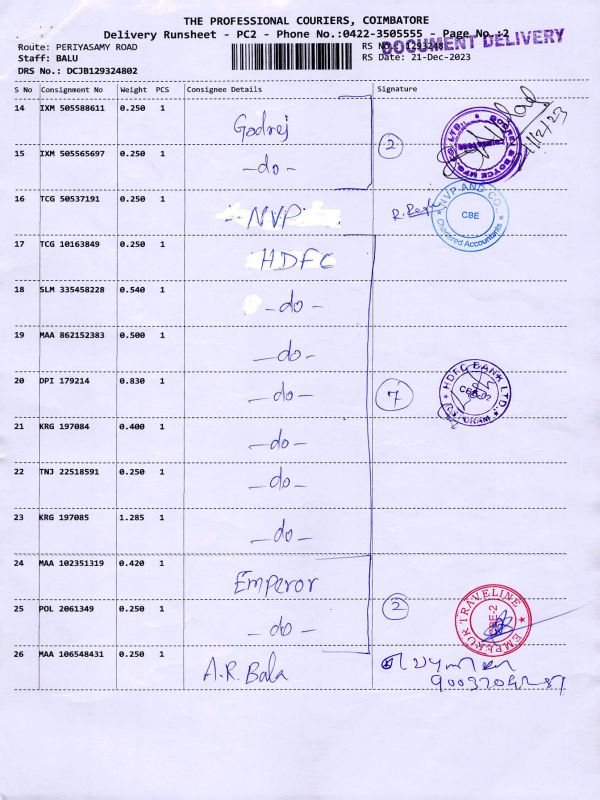 THE PROFESSIONAL COURIERS, COIMBATORE
Delivery Runsheet - PC2 - Phone No.:0422-3505555 - Page No.:2
DOCUMENT DELIVERY
Route: PERIYASAMY ROAD RS No.: 1293248
Staff: BALU RS Date: 21-Dec-2023
DRS No.: DCJB129324802
S No Consignment No Weight PCS Consignee Details Signature
14 IXM 505588611 0.250 1 Godrej
15 IXM 505565697 0.250 1 -do- 2
GODREJ & BOYCE MFG. CO. LTD.
16 TCG 50537191 0.250 1 NVP
NVP AND CO.
CBE
Chartered Accountants
17 TCG 10163849 0.250 1 HDFC
18 SLM 335458228 0.540 1 -do-
19 MAA 862152383 0.500 1 -do-
20 DPI 179214 0.830 1 -do- 7
HDFC BANK LTD.
21 KRG 197084 0.400 1 -do-
22 TNJ 22518591 0.250 1 -do-
23 KRG 197085 1.285 1 -do-
24 MAA 102351319 0.420 1 Emperor
25 POL 2061349 0.250 1 -do- 2
EMPERUR TRAVELINE
CBE-2
26 MAA 106548431 0.250 1 A.R. Bala